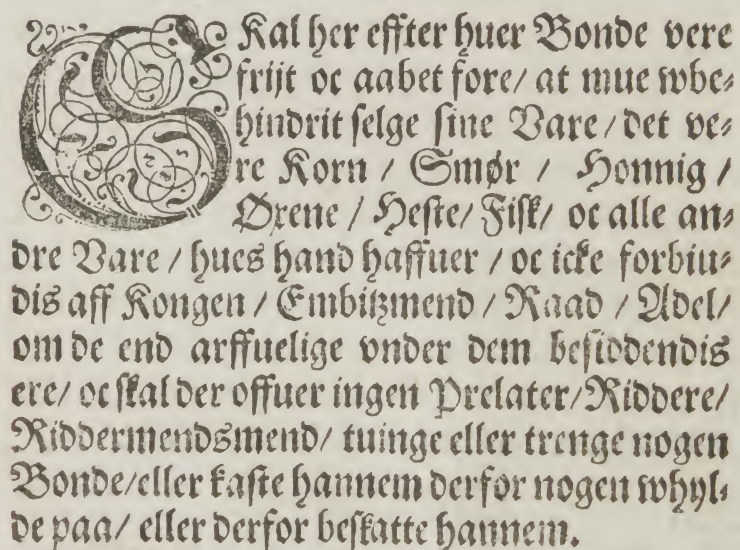 SKal her effter huer Bonde vere
frijt oc aabet fore/ at mue wbe-
hindrit selge sine Vare/ det ve-
re Korn / Smør / Honnig /
Øxene / Heste/ Fisk/ oc alle an-
dre Vare / hues hand haffuer / oc icke forbiu-
dis aff Kongen / Embitzmend / Raad / Adel/
om de end arffuelige vnder dem besiddendis
ere/ oc skal der offuer ingen Prelater/ Riddere/
Riddermendsmend/ tuinge eller trenge nogen
Bonde/ eller kaste hannem derfor nogen whyl-
de paa/ eller derfor beskatte hannem.